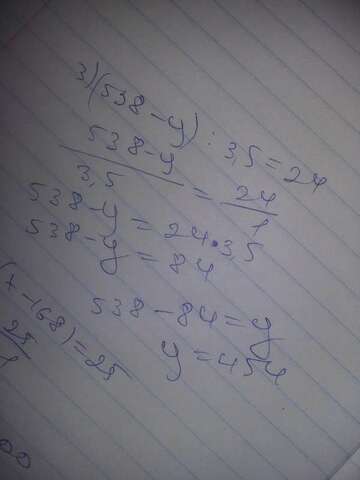 3) (538 - y) : 3,5 = 24
538 - y / 3,5 = 24 / 1
538 - y = 24 · 3,5
538 - y = 84
538 - 84 = y
y = 454
- 168) = 25
25
00